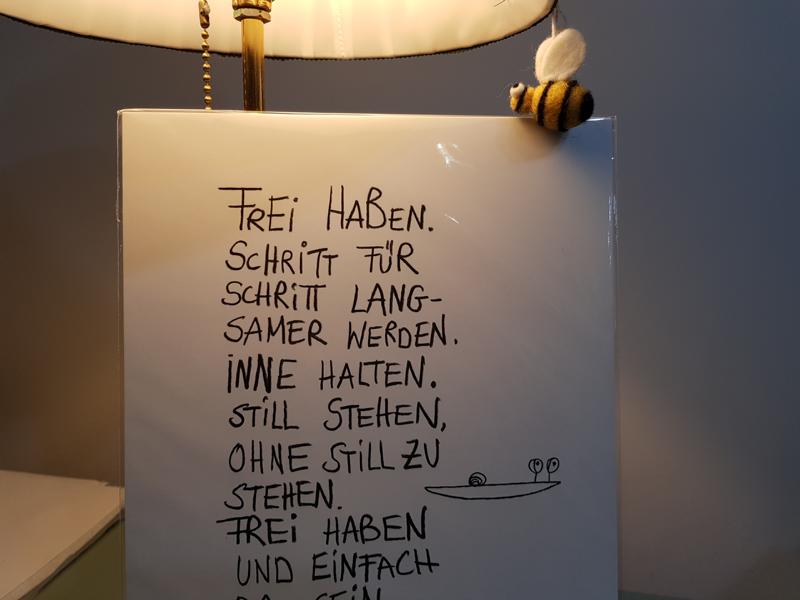 FREi HABEN.
SCHRiTT FÜR
SCHRiTT LANG-
SAMER WERDEN.
iNNE HALTEN.
STiLL STEHEN,
OHNE STiLL ZU
STEHEN.
FREi HABEN
UND EiNFACH
DA SEiN